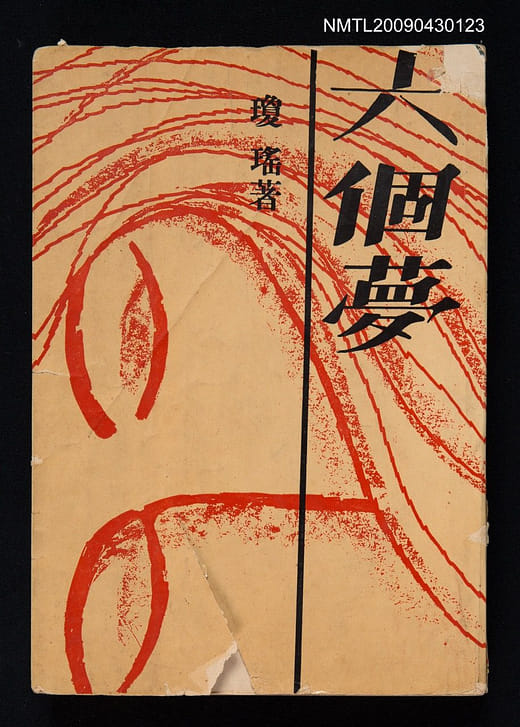 NMTL20090430123
六個夢
瓊瑤著